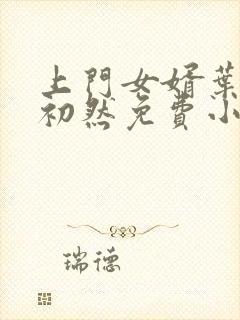 上門女婿葉
初然免費小
瑞德